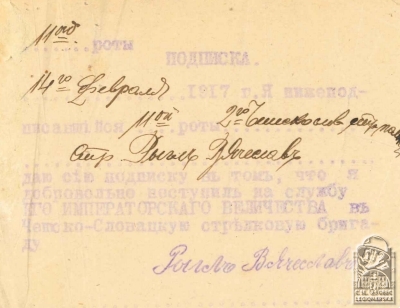 11ой роты
ПОДПИСКА.
14го февраля 1917 г. Я нижепод-
писавшійся 11ой роты 2го Чешскослов. стр. полка
стр Рыглъ Вячеславъ
даю сію подписку въ томъ, что я
добровольно поступилъ на службу
ЕГО ИМПЕРАТОРСКАГО ВЕЛИЧЕСТВА въ
Чешско-Словацкую стрѣлковую брига-
ду
Рыглъ Вячеславъ